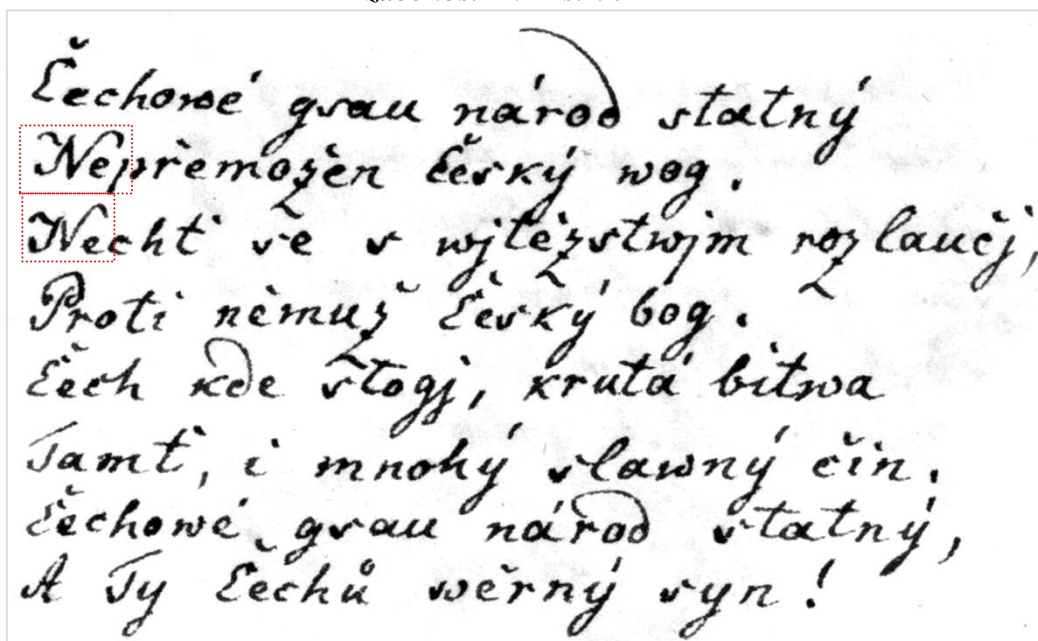 Čechowé gsau národ statný
Nepřemožen Český wog.
Nechť se s wjtězstwjm rozlaučj,
Proti němuž Český bog.
Čech kde stogj, krutá bitwa
Tamť, i mnohý slawný čin.
Čechowé gsau národ statný,
A Ty Čechů wěrný syn!